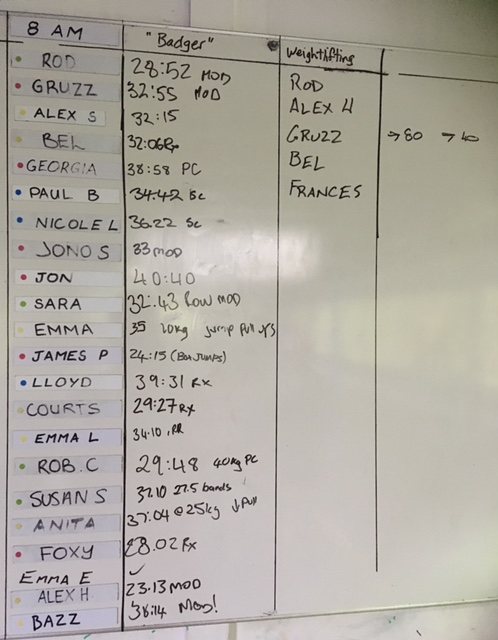 8 AM "Badger" weightlifting
ROD 28:52 MOD ROD
GRUZZ 32:55 MOD ALEX H
ALEX S 32:15 GRUZZ → 80 → 40
BEL 32:06 Rx BEL
GEORGIA 38:58 PC FRANCES
PAUL B 34.42 Sc
NICOLE L 36.22 Sc
JONO S 33 MOD
JON 40:40
SARA 32:43 ROW MOD
EMMA 35 20kg jump pull ups
JAMES P 24:15 (BOX JUMPS)
LLOYD 39:31 Rx
COURTS 29:27 RX
EMMA L 34.10
ROB.C 29:48 40kg PC
SUSAN S 37.10 27.5 bands
ANITA 37:04 @ 25kg ↓ Pull
FOXY 28.02 Rx
EMMA E ✓
ALEX H 23.13 MOD
BAZZ 38:14 MOD!